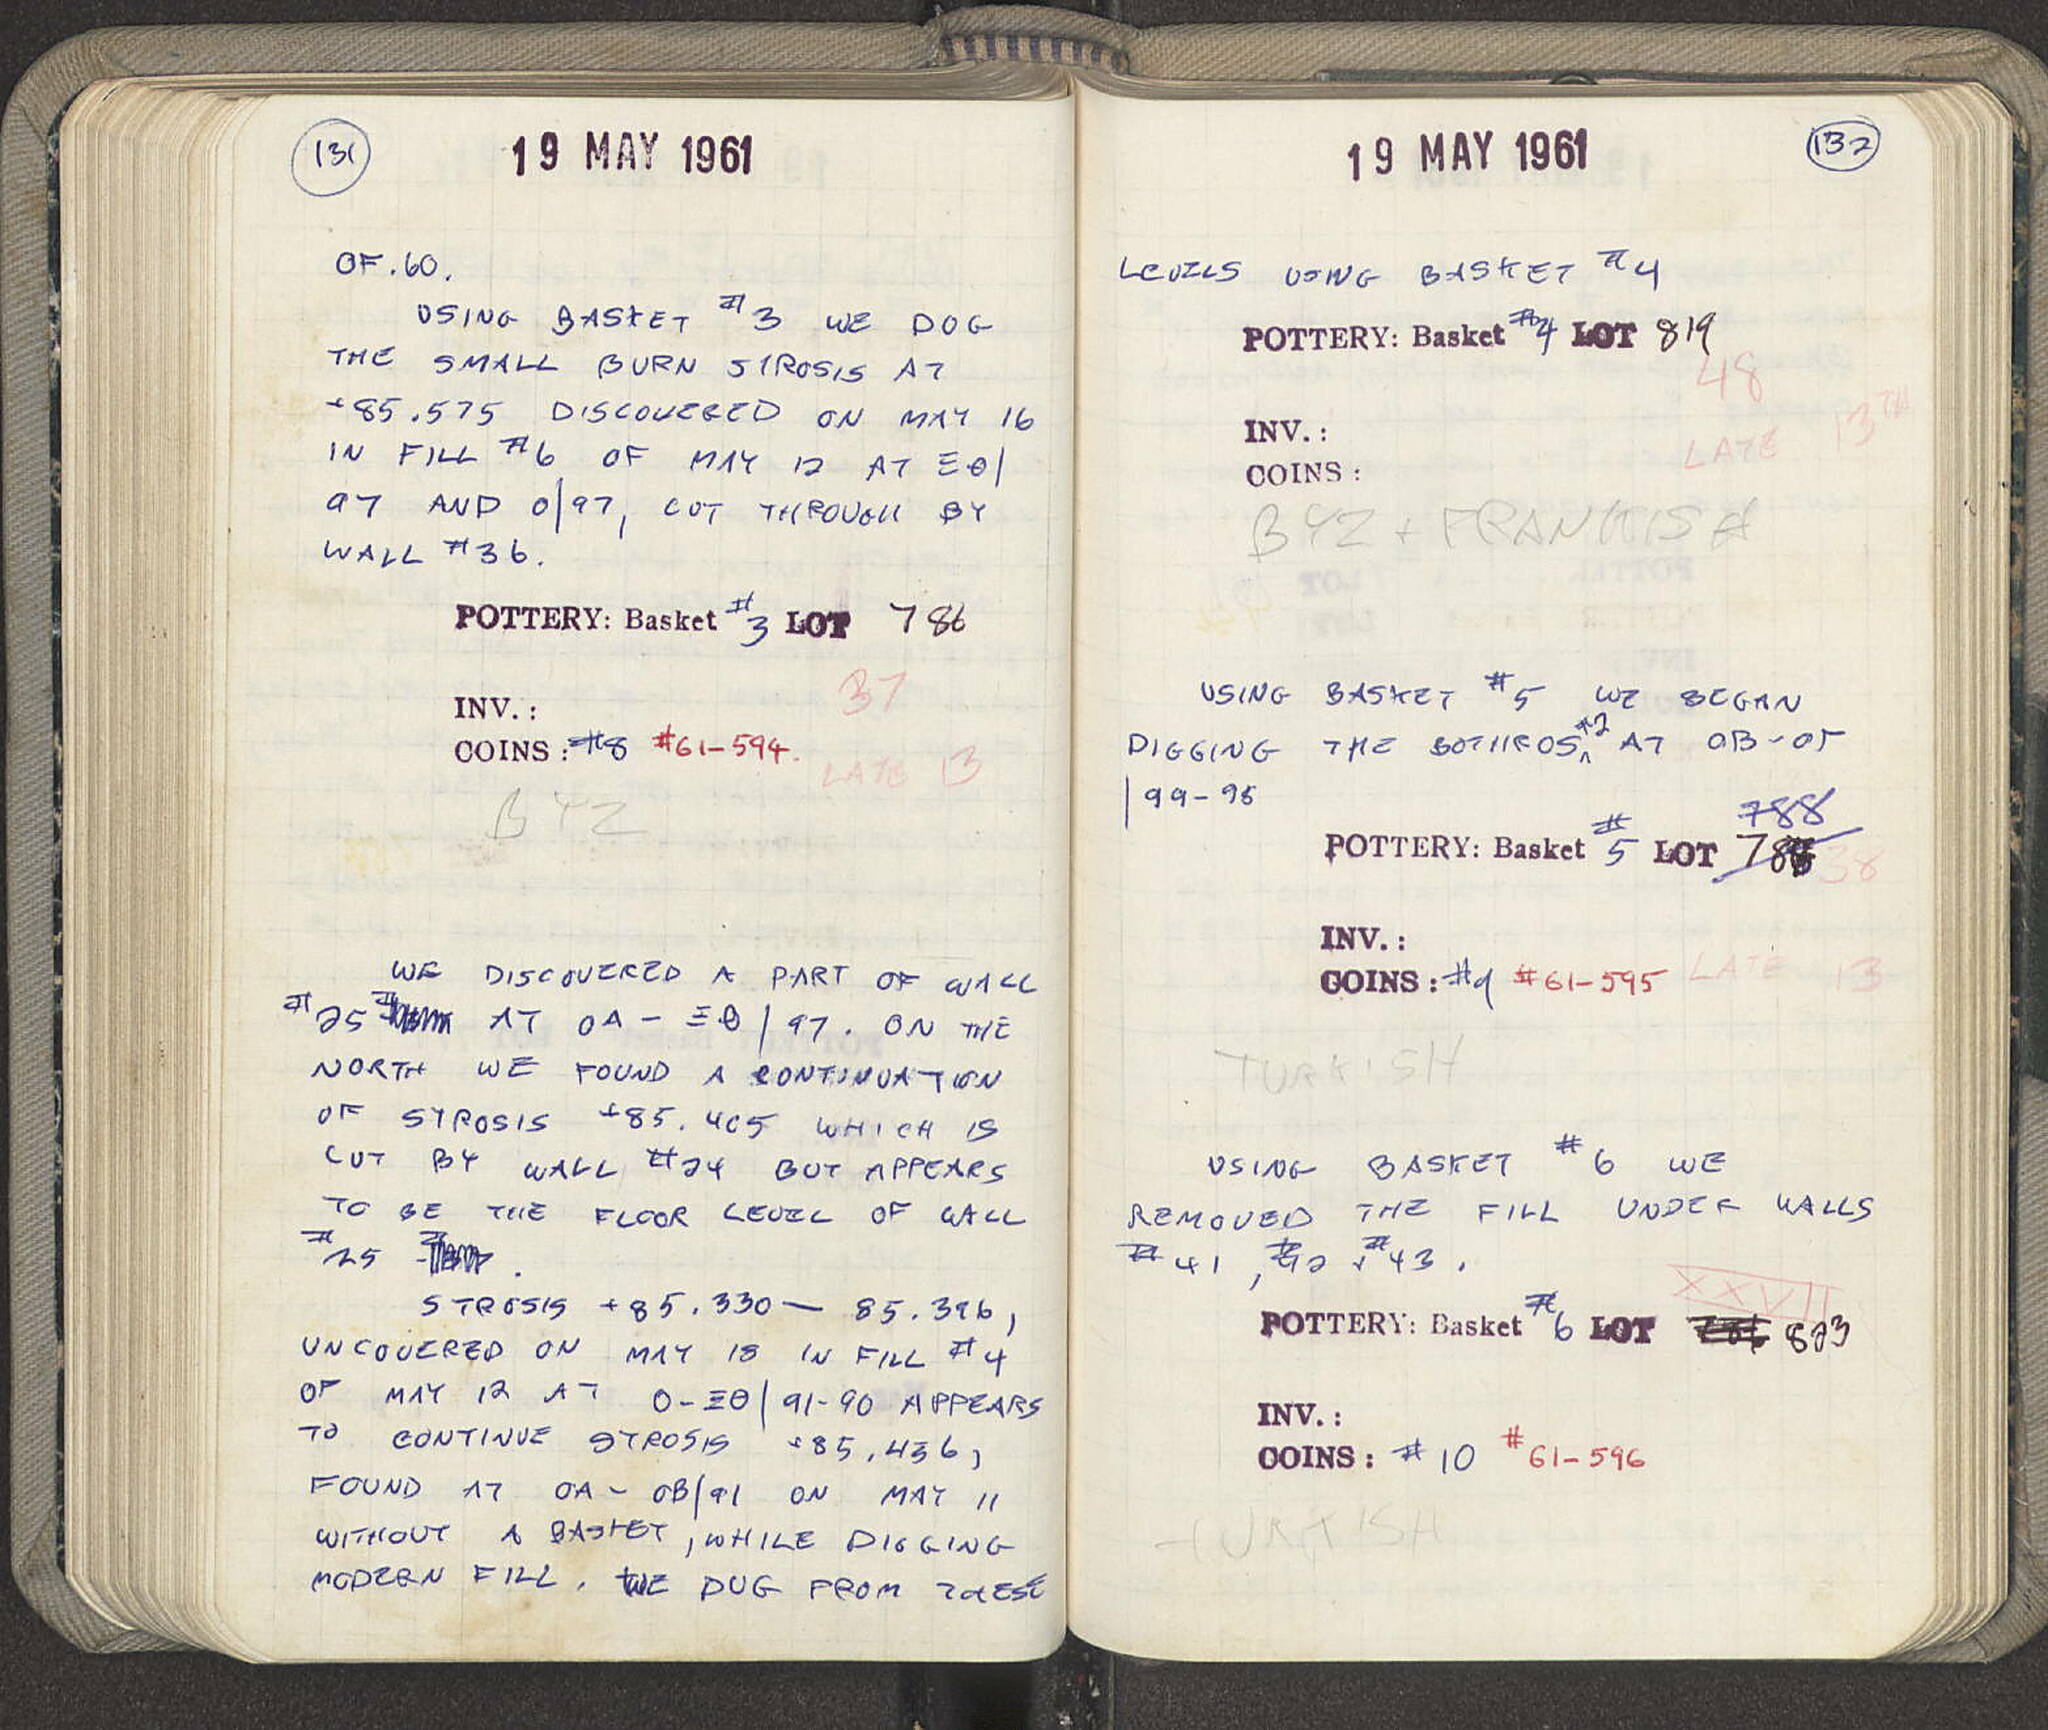 131
19 MAY 1961
OF .60.
USING BASKET #3 WE DUG
THE SMALL BURN STROSIS AT
+85.575 DISCOVERED ON MAY 16
IN FILL #6 OF MAY 12 AT ΞΘ/
97 AND O/97, CUT THROUGH BY
WALL #36.
POTTERY: Basket #3 LOT 786
37
INV.:
COINS: #8 #61-594.
LATE 13
BYZ
WE DISCOVERED A PART OF WALL
#25 AT OA - ΞΘ/97. ON THE
NORTH WE FOUND A CONTINUATION
OF STROSIS +85.405 WHICH IS
CUT BY WALL #24 BUT APPEARS
TO BE THE FLOOR LEVEL OF WALL
#25 .
STROSIS +85.330 — 85.396,
UNCOVERED ON MAY 18 IN FILL #4
OF MAY 12 AT O-ΞΘ/91-90 APPEARS
TO CONTINUE STROSIS +85.436,
FOUND AT OA - OB/91 ON MAY 11
WITHOUT A BASKET, WHILE DIGGING
MODERN FILL. WE DUG FROM THESE
19 MAY 1961
132
LEVELS USING BASKET #4
POTTERY: Basket #4 LOT 819
48
LATE 13TH
INV.:
COINS:
BYZ + FRANKISH
USING BASKET #5 WE BEGAN
DIGGING THE BOTHROS #2 AT OB-OΓ
/99-95
788
POTTERY: Basket #5 LOT
38
INV.:
COINS: #9 #61-595
LATE 13
TURKISH
USING BASKET #6 WE
REMOVED THE FILL UNDER WALLS
#41, #42 + #43.
XXVII
POTTERY: Basket #6 LOT 823
INV.:
COINS: #10 #61-596
TURKISH